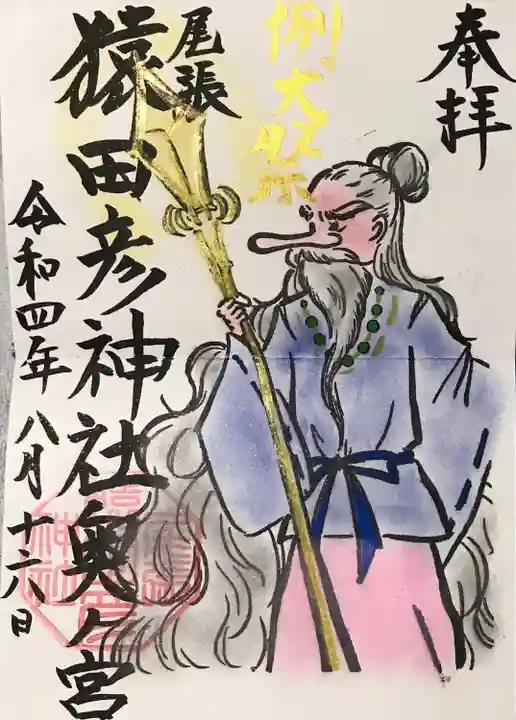 奉拝
例大祭
尾張
猿田彦神社奥ヶ宮
令和四年 八月 十六日